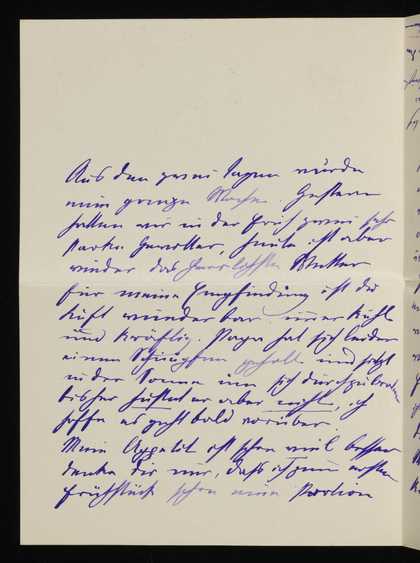 Aus den zwei Tagen wurde
eine ganze Woche. Gestern
hatten wir in der Früh zwei sehr
starke Gewitter, heute ist aber
wieder das herrlichste Wetter
für meine Empfindung ist die
Luft wunderbar immer kühl
und kräftig. Papa hat sich leider
einen Schnupfen geholt und sitzt
in der Sonne um sich
bisher hustet er aber nicht, ich
hoffe es geht bald vorüber.
Mein Appetit ist schon viel besser
denke Dir nur, daß ich zum ersten
Frühstück schon eine Portion